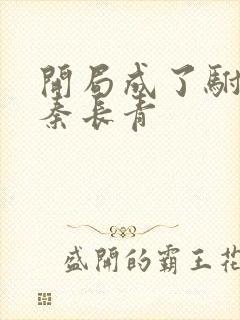 開局成了駙
秦長青
盛開的霸王花